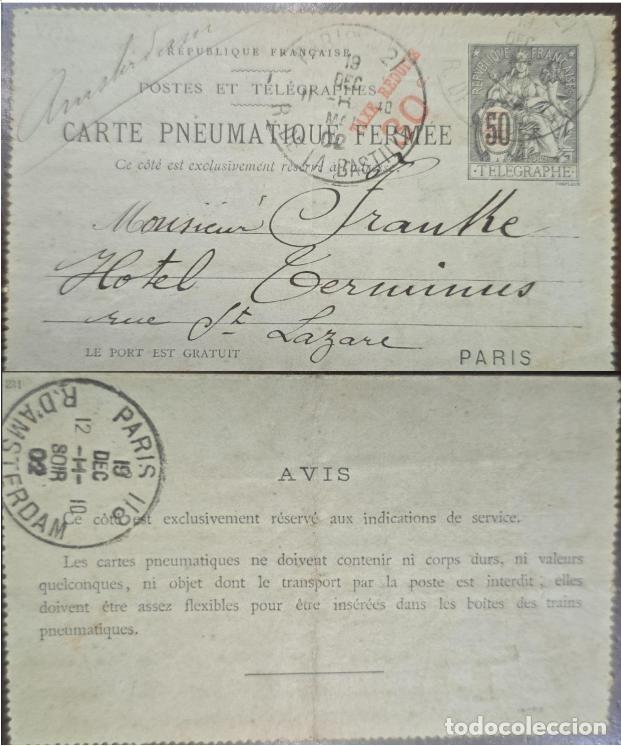 Amsterdam
RÉPUBLIQUE FRANÇAISE
POSTES ET TÉLÉGRAPHES
CARTE PNEUMATIQUE FERMÉE
Ce côté est exclusivement réservé à
PARIS 21
19
DEC
02
LA BASTILLE
TAXE RÉDUITE
30c
RÉPUBLIQUE FRANÇAISE
50
TÉLÉGRAPHE
Monsieur Franke
Hotel Terminus
rue St Lazare
LE PORT EST GRATUIT
PARIS
231
PARIS 118
12 -H- 10
SOIR
19
DEC
02
R. D'AMSTERDAM
AVIS
Ce côté est exclusivement réservé aux indications de service.
Les cartes pneumatiques ne doivent contenir ni corps durs, ni valeurs
quelconques, ni objet dont le transport par la poste est interdit; elles
doivent être assez flexibles pour être insérées dans les boîtes des trains
pneumatiques.
todocoleccion.net